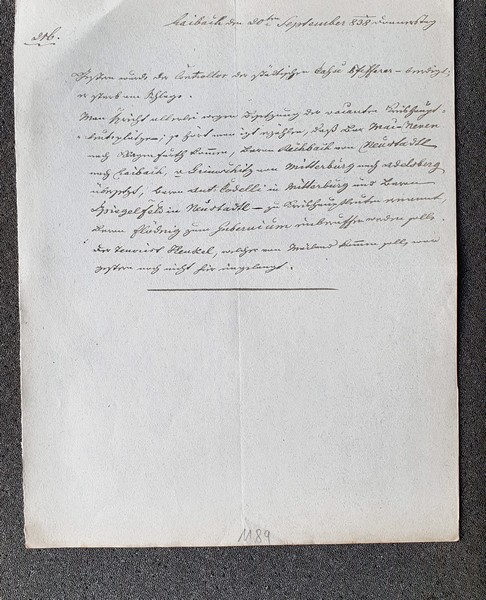 Laibach den 20ten September 838 Donnerstag
Gestern wurde der Controllor der städtischen Casse Pfifferer – beerdigt;
er starb am Schlage.
Man spricht allerlei wegen Besetzung der vacanten Kreishaupt-
so hört man jetzt erzählen, daß Bar. Mac-Neven
nach Klagenfurth komme, Baron Reichbach von Neustadtl
nach Laibach, v Grimschitz von Mitterburg nach Adelsberg
übersetzt, Baron Ant. Codelli in Mitterburg und Baron
Spiegelfeld in Neustadtl – zu Kreishauptleuten ernannt,
dann Flödnig zum Gubernium einberuffen werden solle.
Der Tenorist Henkel, welcher von Mailand kommen solle, war
gestern noch nicht hier eingelangt.
1189